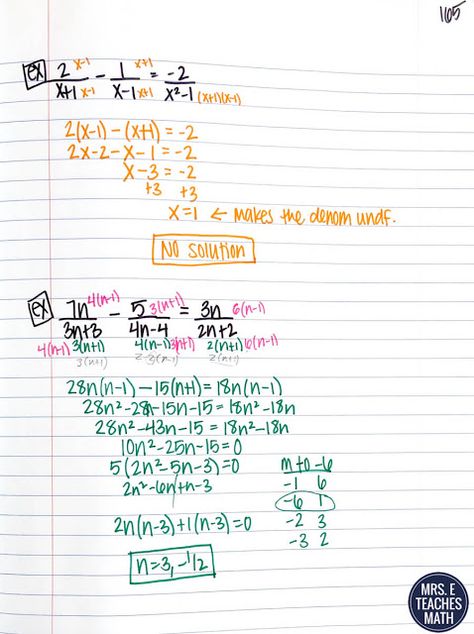 165
ex 2 x-1 / x+1 x-1 - 1 x+1 / x-1 x+1 = -2 / x²-1 (x+1)(x-1)
2(x-1) - (x+1) = -2
2x-2-x-1 = -2
x-3 = -2
+3 +3
x=1 ← makes the denom undf.
NO solution
ex 7n 4(n-1) / 3n+3 - 5 3(n+1) / 4n-4 = 3n 6(n-1) / 2n+2
4(n-1) 3(n+1) 4(n-1) 3(n+1) 2(n+1) 6(n-1)
3(n+1) 2·3(n-1) 2(n+1)
28n(n-1) - 15(n+1) = 18n(n-1)
28n²-28n-15n-15 = 18n²-18n
28n²-43n-15 = 18n²-18n
10n²-25n-15=0
5(2n²-5n-3)=0
2n²-6n+n-3
m to -6
-1 6
-6 1
-2 3
-3 2
2n(n-3)+1(n-3)=0
n=3, -1/2
MRS. E
TEACHES
MATH